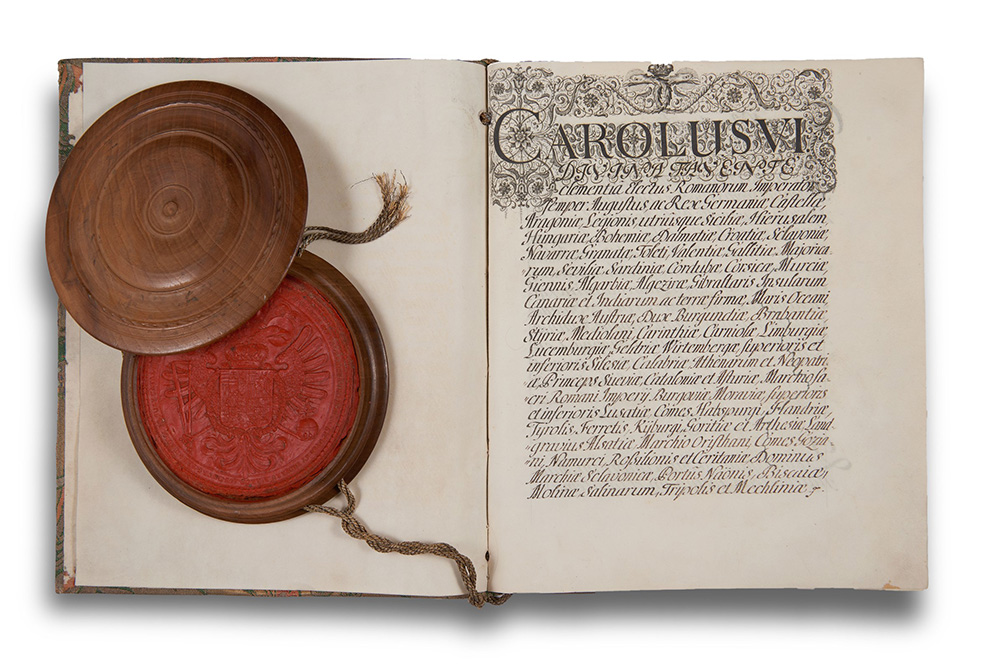 CAROLUS VI
DIVINA FAVENTE
clementia Electus Romanorum Imperator
semper Augustus ac Rex Germaniæ, Castellæ,
Aragoniæ, Legionis, utriusque Siciliæ, Hierusalem,
Hungariæ, Bohemiæ, Dalmatiæ, Croatiæ, Sclavoniæ,
Navarræ, Granatæ, Toleti, Valentiæ, Gallitiæ, Majorica-
rum, Seviliæ, Sardiniæ, Cordubæ, Corsicæ, Murciæ,
Giennis, Algarbiæ, Algeziræ, Gibraltaris, Insularum
Canariæ et Indiarum ac terræ firmæ, Maris Oceani,
Archidux Austriæ, Dux Burgundiæ, Brabantiæ,
Styriæ, Mediolani, Carinthiæ, Carniolæ, Limburgiæ,
Lucemburgiæ, Geldriæ, Wirtembergæ, superioris et
inferioris Silesiæ, Calabriæ, Athenarum et Neopatri-
æ, Princeps Sueviæ, Cataloniæ et Asturiæ, Marchio sa-
cri Romani Imperij, Burgoviæ, Moraviæ, superioris
et inferioris Lusatiæ, Comes Habspurgi, Flandriæ,
Tyrolis, Ferretis, Kyburgi, Goritiæ et Arthesiæ, Land-
gravius Alsatiæ, Marchio Oristhani, Comes Gozia-
ni, Namurci, Roßilionis et Ceritaniæ, Dominus
Marchiæ Sclavonicæ, Portus Naonis, Biscaiæ,
Molinæ, Salinarum, Tripolis et Mechliniæ